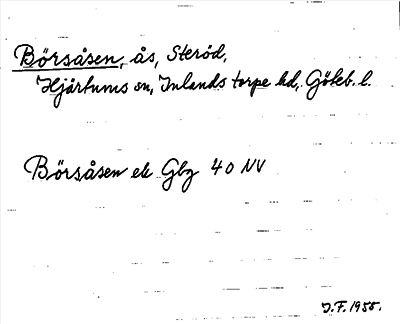 Börsåsen, ås, Steröd,
Hjärtums sn, Inlands torpe hd, Göteb. l.
Börsåsen ek Gbg 40 NV
J.F. 1955.